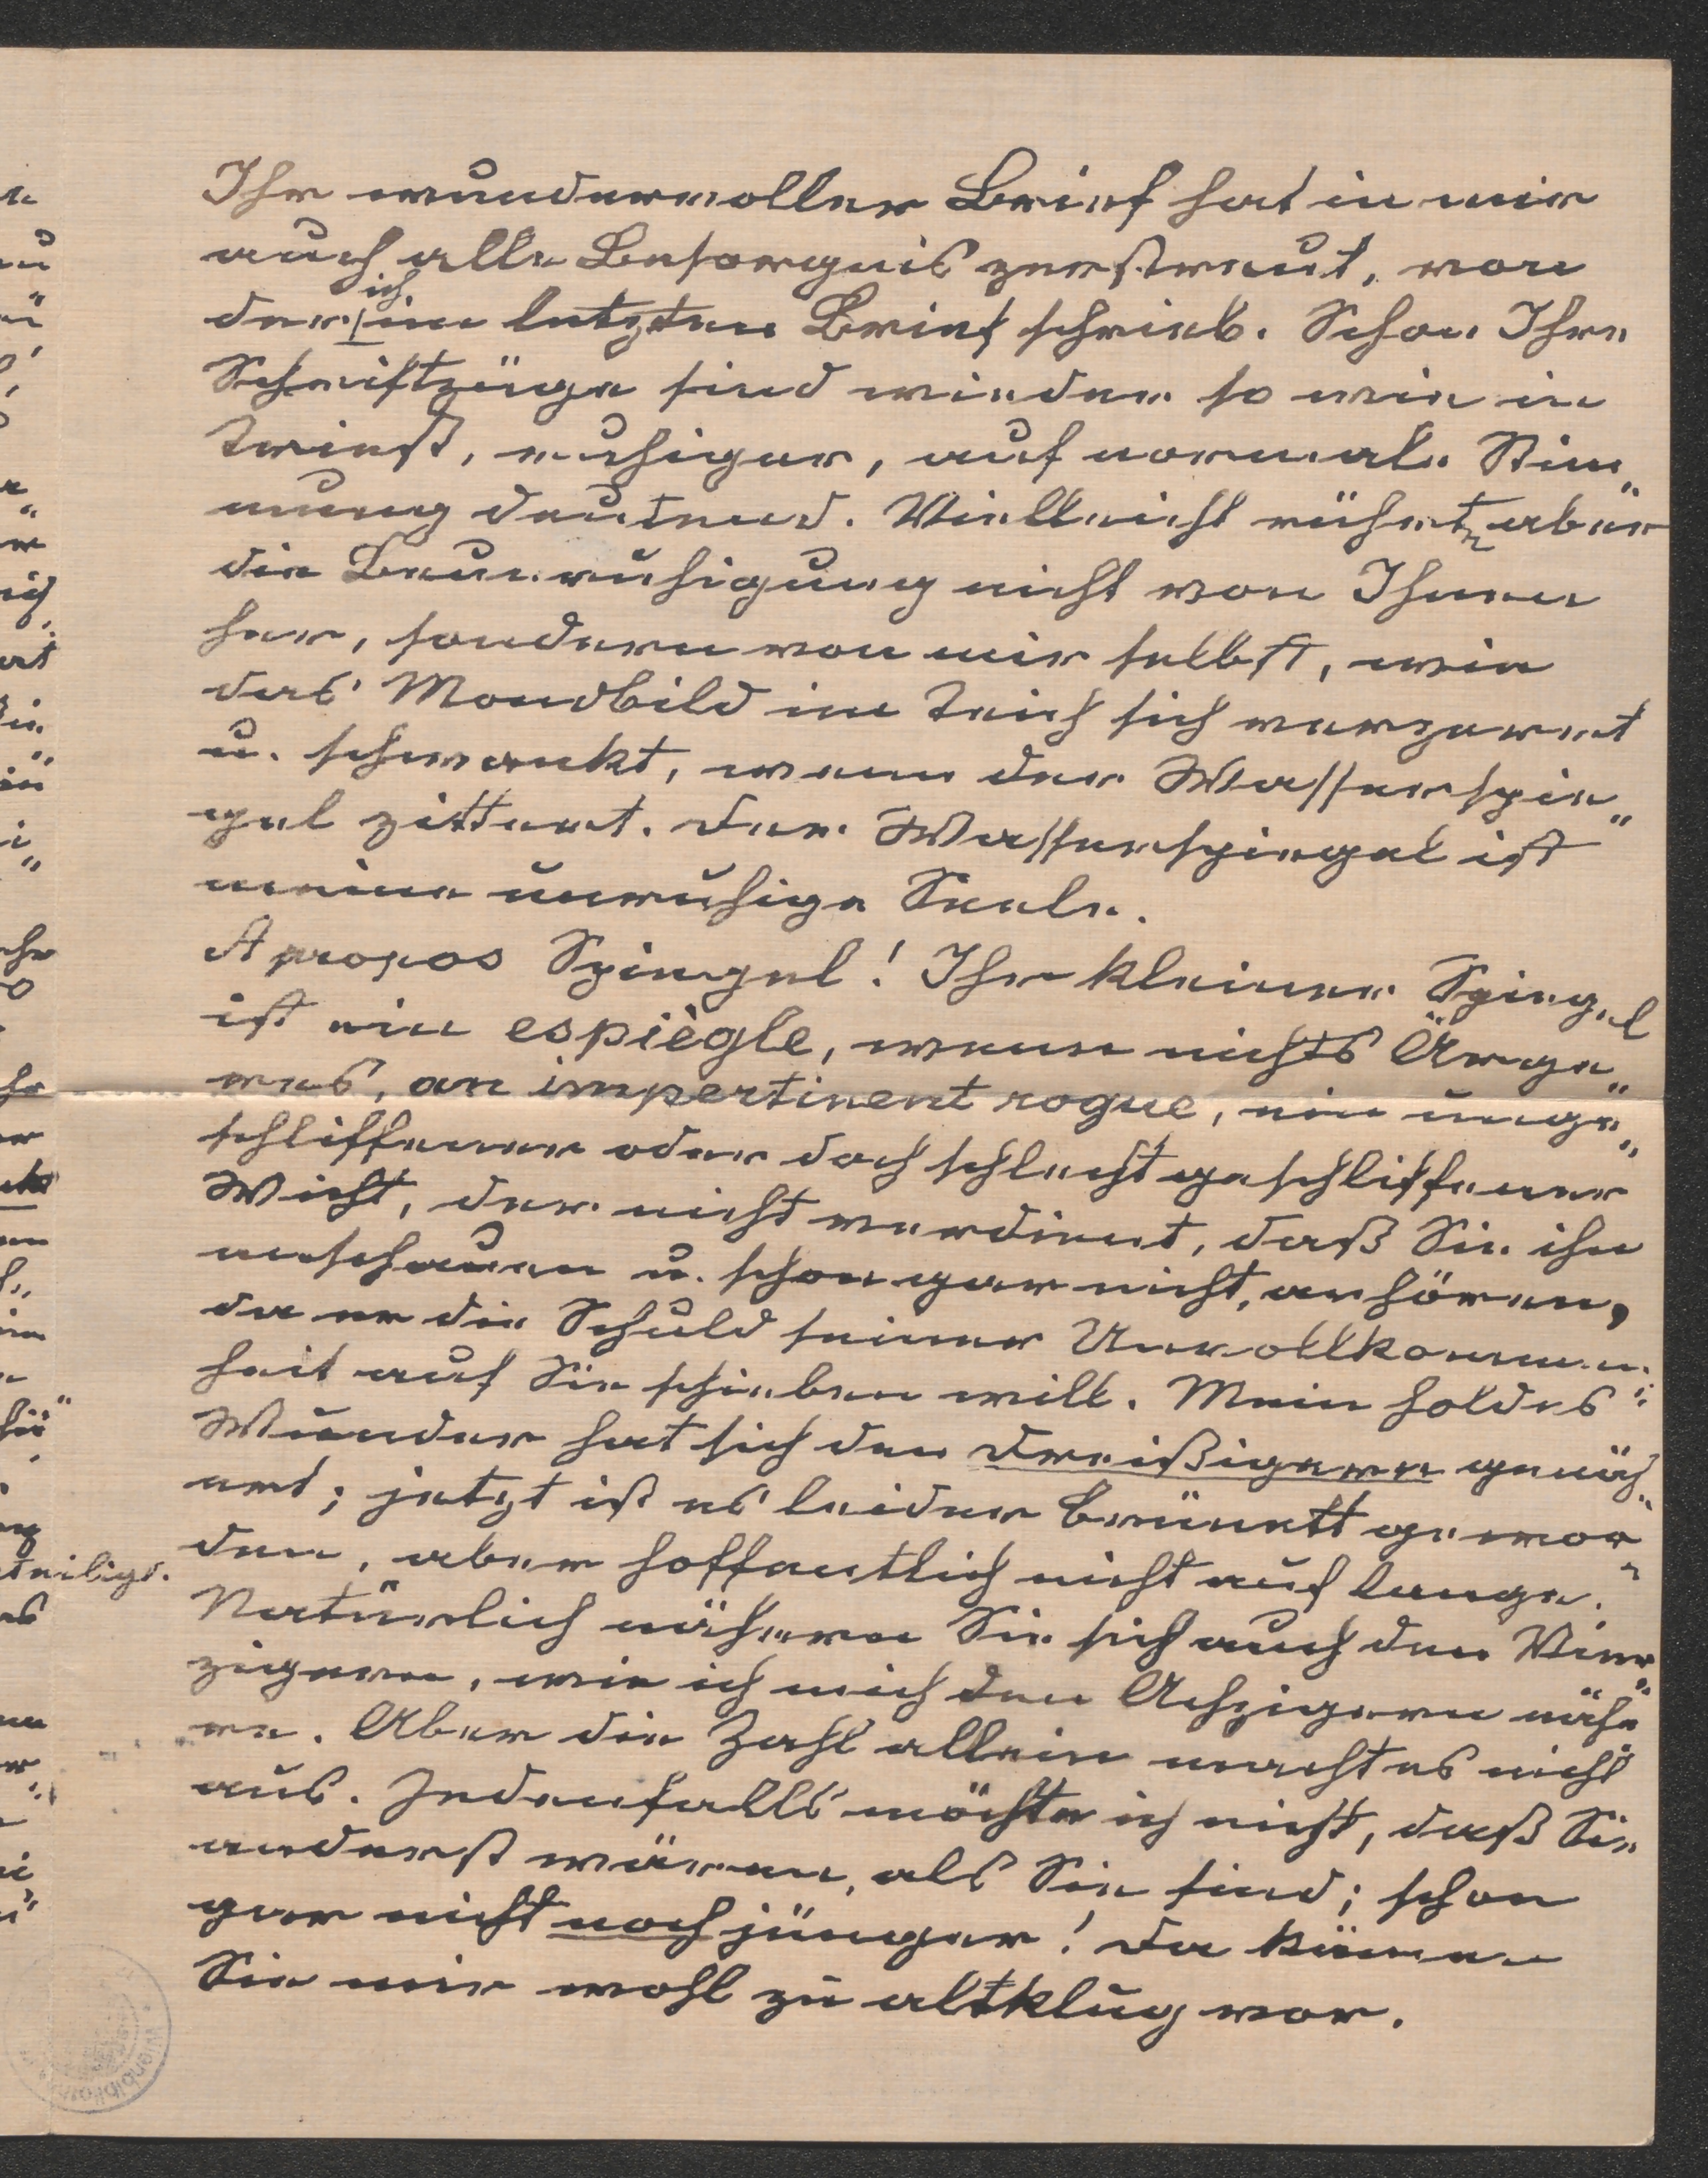 Ihr wundervoller Brief hat in mir
auch alle Besorgnis zerstreut, von
der ich im letzten Brief schrieb. Schon Ihre
Schriftzüge sind wieder so wie in
Triest, ruhiger, auf normale Stim„
mung deutend. Vielleicht rührte aber
die Beunruhigung nicht von Ihnen
her, sondern von mir selbst, wie
das Mondbild im Teich sich verzerrt
u. schwankt, wenn der Wasserspie„
gel zittert. Der Wasserspiegel ist
meine unruhige Seele.
Apropos Spiegel! Ihr kleiner Spiegel
ist ein espiègle, wenn nichts Ärge„
res, an impertinent rogue, ein unge„
schliffener oder doch schlecht geschliffener
Wicht, der nicht verdient, daß Sie ihn
anschauen u. schon gar nicht, anhören,
da er die Schuld seiner Unvollkommen„
heit auf Sie schieben will. Mein holdes
Wunder hat sich den Dreißigern genäh„
ert; jetzt ist es leider brünett gewor„
den, aber hoffentlich nicht auf lange.
Natürlich nähern Sie sich auch den Vier„
zigern, wie ich mich den Achzigern nähe„
re. Aber die Zahl allein macht es nicht
aus. Jedenfalls möchte ich nicht, daß Sie
anderst wären, als Sie sind; schon
gar nicht noch jünger! Da kämen
Sie mir wohl zu altklug vor.